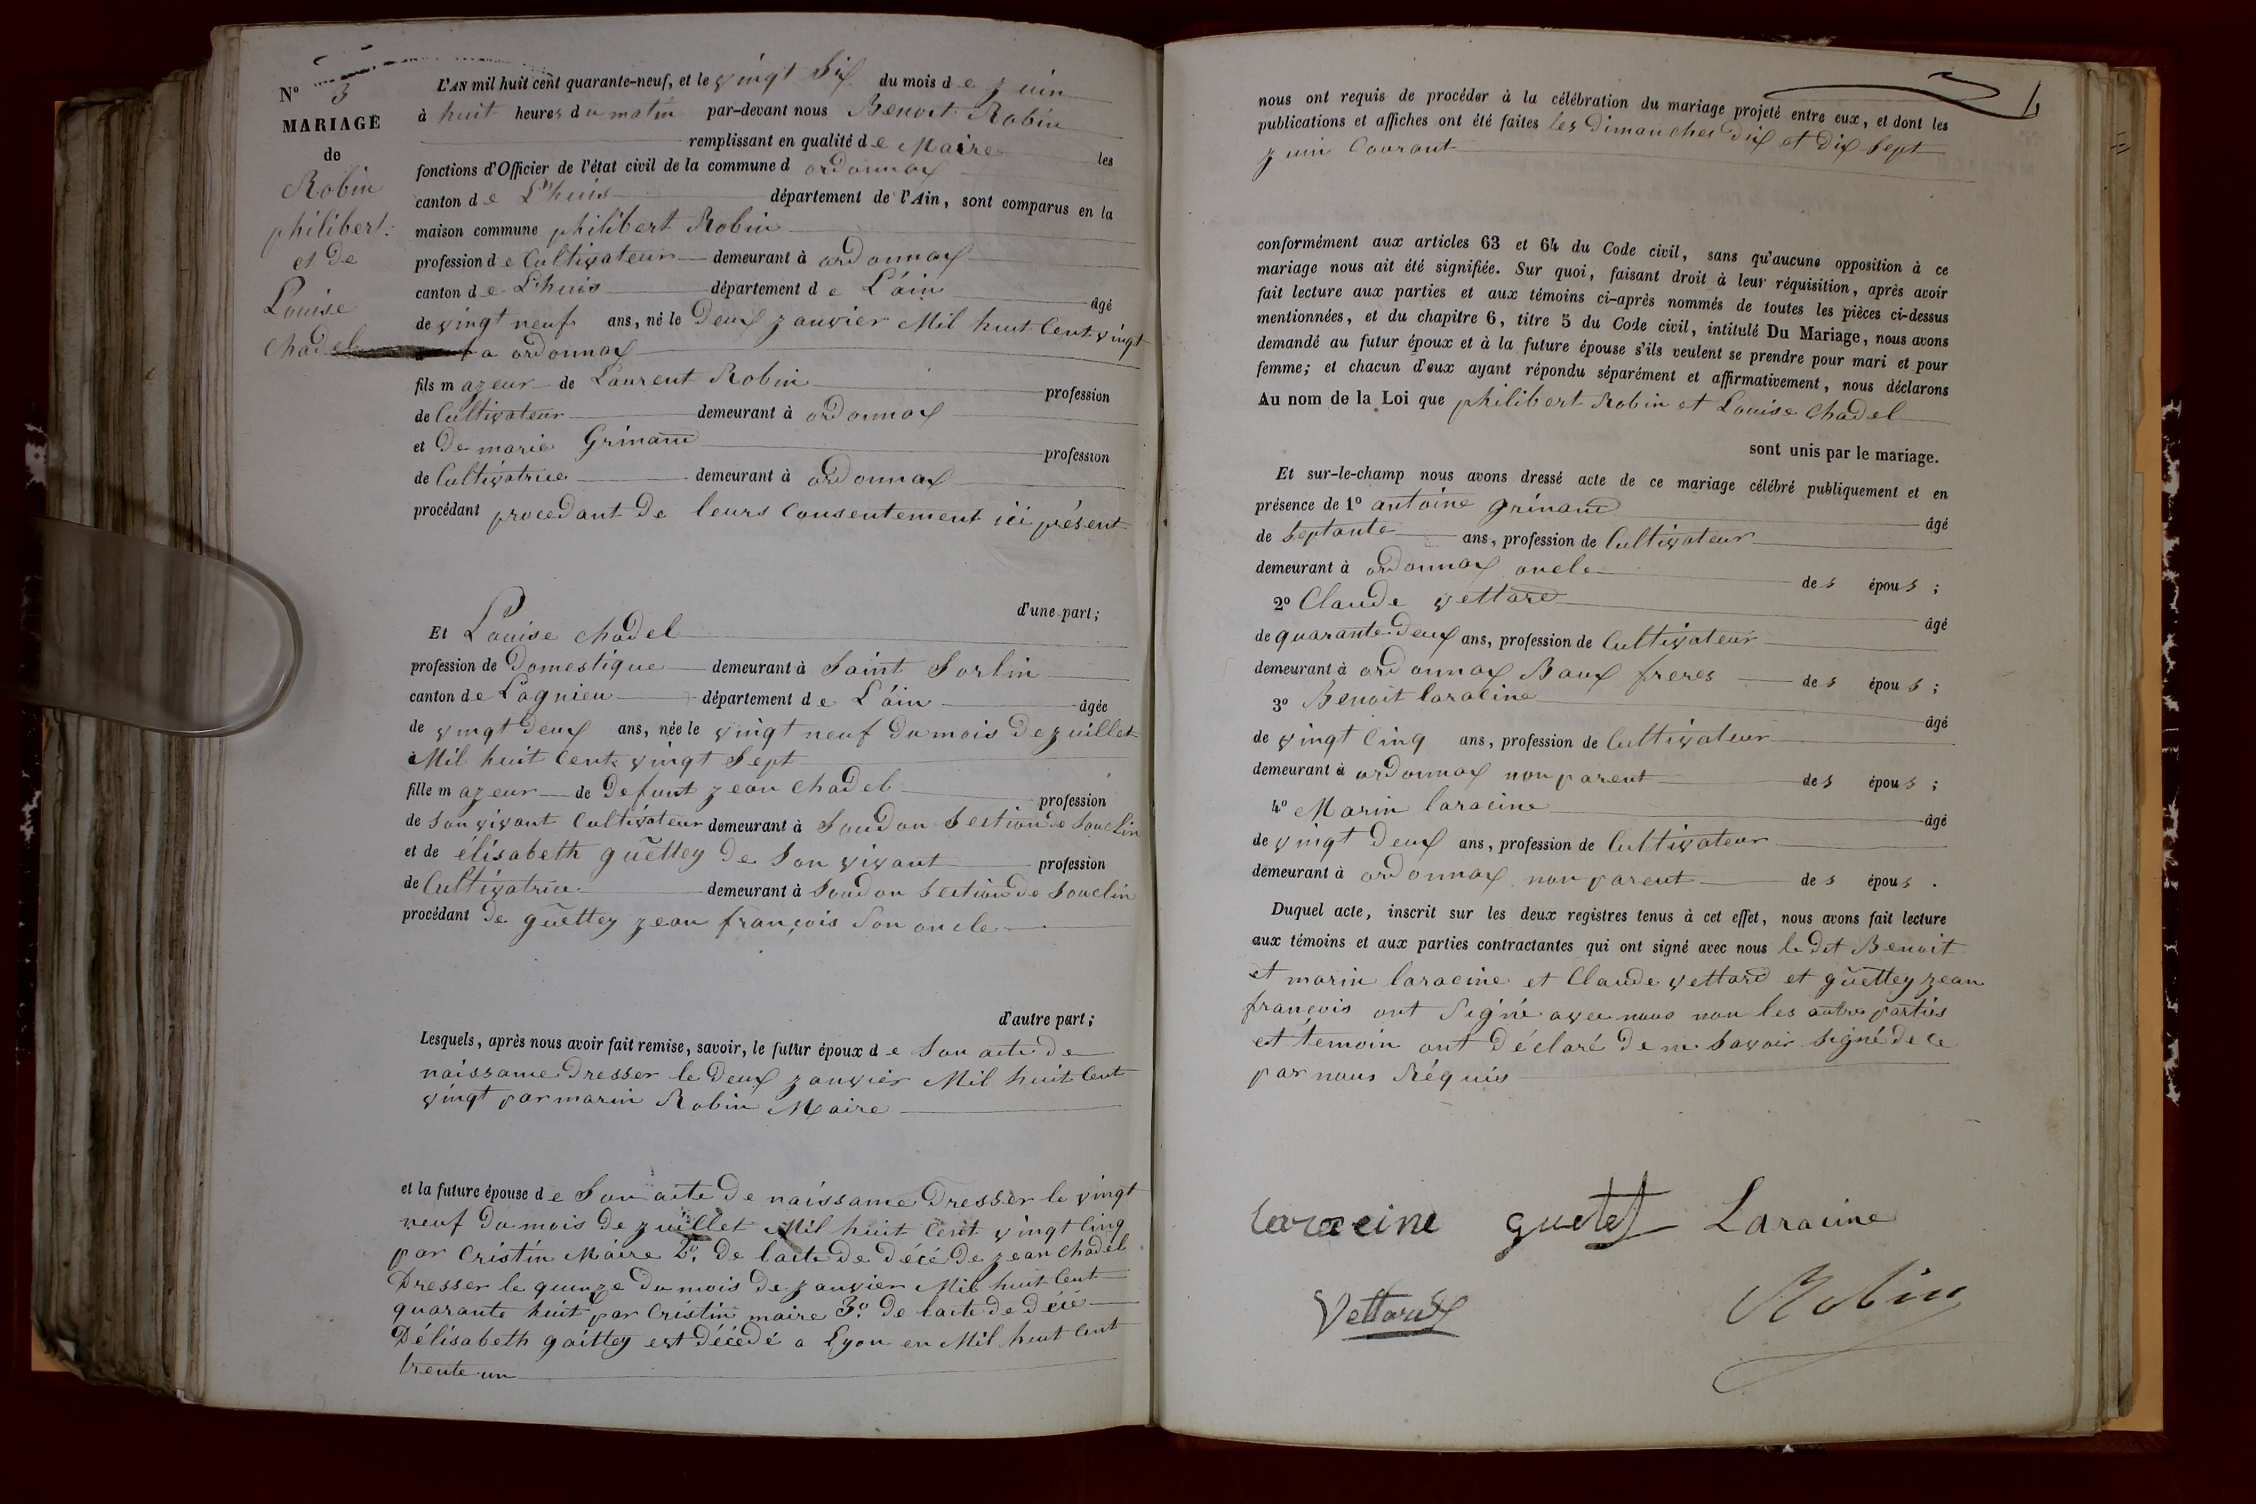 N° 3
MARIAGE
de
Robin
philibert
et de
Louise
chadel
L'AN mil huit cent quarante-neuf, et le vingt Six du mois de juin
à huit heures du matin par-devant nous Benoit Robin
remplissant en qualité de Maire les
fonctions d'Officier de l'état civil de la commune d ordonnax
canton de L'huis département de l'Ain, sont comparus en la
maison commune philibert Robin
profession de Cultivateur demeurant à ordonnax
canton de L'huis département de L'ain âgé
de vingt neuf ans, né le Deux janvier Mil huit Cent vingt
a ordonnax
fils majeur de Laurent Robin profession
de Cultivateur demeurant à ordonnax
et De marie Grinand profession
de Cultivatrice demeurant à ordonnax
procédant procedant de leurs Consentement ici présent
d'une part;
Et Louise chadel
profession de Domestique demeurant à Saint Sorlin
canton de Lagnieu département de L'ain âgée
de vingt deux ans, née le vingt neuf du mois de juillet
Mil huit Cent vingt Sept
fille majeur de Defunt jean chadel profession
de Son vivant Cultivateur demeurant à Soudon Section de Souclin
et de élisabeth guettey de Son vivant profession
de Cultivatrice demeurant à Soudon Section de Souclin
procédant de guettey jean françois Son oncle
d'autre part;
Lesquels, après nous avoir fait remise, savoir, le futur époux de Son acte de
naissance Dresser le Deux janvier Mil huit Cent
vingt par marin Robin Maire
et la future épouse de Son acte de naissance Dresser le vingt
neuf du mois de juillet Mil huit Cent vingt Cinq
par Cristin Maire 2°. De lacte de décé de jean chadel
Dresser le quinze du mois de janvier Mil huit Cent
quarante huit par Cristin maire 3°. De lacte de décé
Délisabeth gaittey est décédé a Lyon en Mil huit Cent
trente un
nous ont requis de procéder à la célébration du mariage projeté entre eux, et dont les
publications et affiches ont été faites les Dimanches Dix et Dix Sept
juin Courant
conformément aux articles 63 et 64 du Code civil, sans qu'aucune opposition à ce
mariage nous ait été signifiée. Sur quoi, faisant droit à leur réquisition, après avoir
fait lecture aux parties et aux témoins ci-après nommés de toutes les pièces ci-dessus
mentionnées, et du chapitre 6, titre 5 du Code civil, intitulé Du Mariage, nous avons
demandé au futur époux et à la future épouse s'ils veulent se prendre pour mari et pour
femme; et chacun d'eux ayant répondu séparément et affirmativement, nous déclarons
Au nom de la Loi que philibert Robin et Louise Chadel
sont unis par le mariage.
Et sur-le-champ nous avons dressé acte de ce mariage célébré publiquement et en
présence de 1° antoine grinand âgé
de Septante ans, profession de Cultivateur
demeurant à ordonnax oncle des épous;
2° Claude vettard âgé
de quarante deux ans, profession de Cultivateur
demeurant à ordonnax Baux freres des épous;
3° Benoit laracine âgé
de vingt Cinq ans, profession de Cultivateur
demeurant à ordonnax non parent des épous;
4° Marin laracine âgé
de vingt Deux ans, profession de Cultivateur
demeurant à ordonnax non parent des épous.
Duquel acte, inscrit sur les deux registres tenus à cet effet, nous avons fait lecture
aux témoins et aux parties contractantes qui ont signé avec nous le dit Benoit
et marin laracine et Claude vettard et guettey jean
françois ont Signé avec nous non les autres parties
et témoin ont déclaré de ne Savoir Signé de Ce
par nous Réquis
laracine guetet Laracine
Vettard Robin